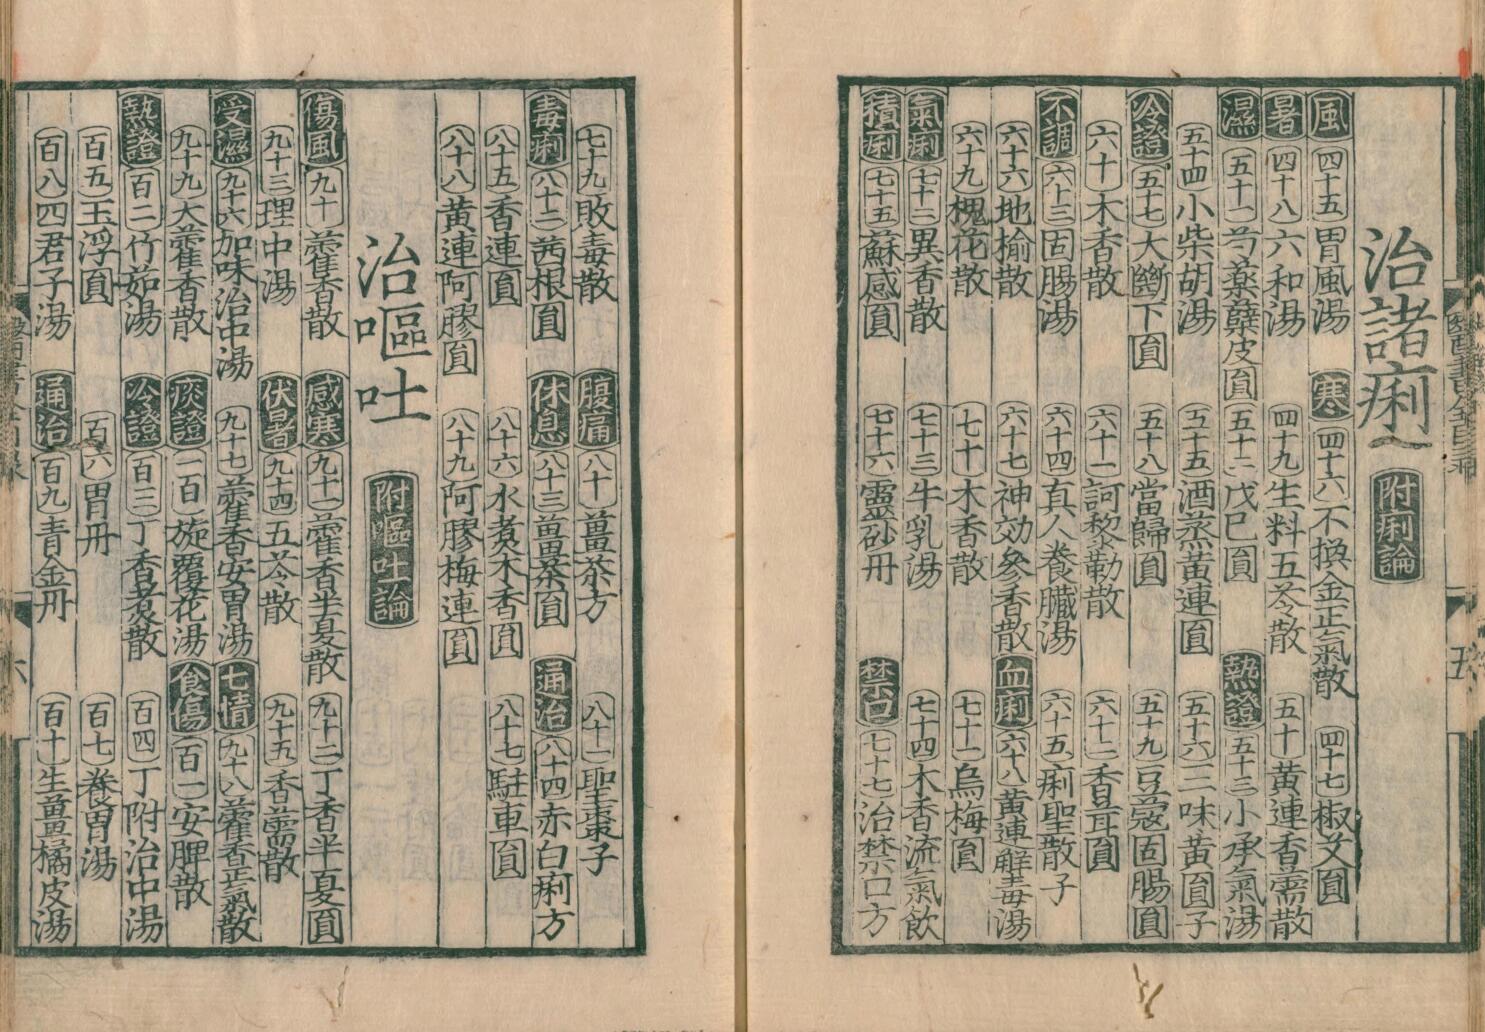 治諸痢 附痢論
風 四十五 胃風湯 寒 四十六 不換金正氣散 四十七 椒艾圓
暑 四十八 六和湯 四十九 生料五苓散 五十 黃連香薷散
濕 五十一 芍藥蘖皮圓 五十二 戊巳圓 熱證 五十三 小承氣湯
五十四 小柴胡湯 五十五 酒蒸黃連圓 五十六 三味黃圓子
冷證 五十七 大斷下圓 五十八 當歸圓 五十九 豆蔻固腸圓
六十 木香散 六十一 訶黎勒散 六十二 香茸圓
不調 六十三 固腸湯 六十四 真人養臟湯 六十五 痢聖散子
六十六 地榆散 六十七 神効參香散 血痢 六十八 黃連解毒湯
六十九 槐花散 七十 木香散 七十一 烏梅圓
氣痢 七十二 異香散 七十三 牛乳湯 七十四 木香流氣飲
積痢 七十五 蘇感圓 七十六 靈砂丹 禁口 七十七 治禁口方
七十九 敗毒散 腹痛 八十 薑茶方 八十一 聖棗子
毒痢 八十二 茜根圓 休息 八十三 薑茶圓 通治 八十四 赤白痢方
八十五 香連圓 八十六 水煑木香圓 八十七 駐車圓
八十八 黃連阿膠圓 八十九 阿膠梅連圓
治嘔吐 附嘔吐論
傷風 九十 藿香散 感寒 九十一 藿香半夏散 九十二 丁香半夏圓
九十三 理中湯 伏暑 九十四 五苓散 九十五 香薷散
受濕 九十六 加味治中湯 九十七 藿香安胃湯 七情 九十八 藿香正氣散
九十九 大藿香散 痰證 一百 旋覆花湯 食傷 百一 安脾散
熱證 百二 竹茹湯 冷證 百三 丁香煑散 百四 丁附治中湯
百五 玉浮圓 百六 胃丹 百七 養胃湯
百八 四君子湯 通治 百九 青金丹 百十 生薑橘皮湯